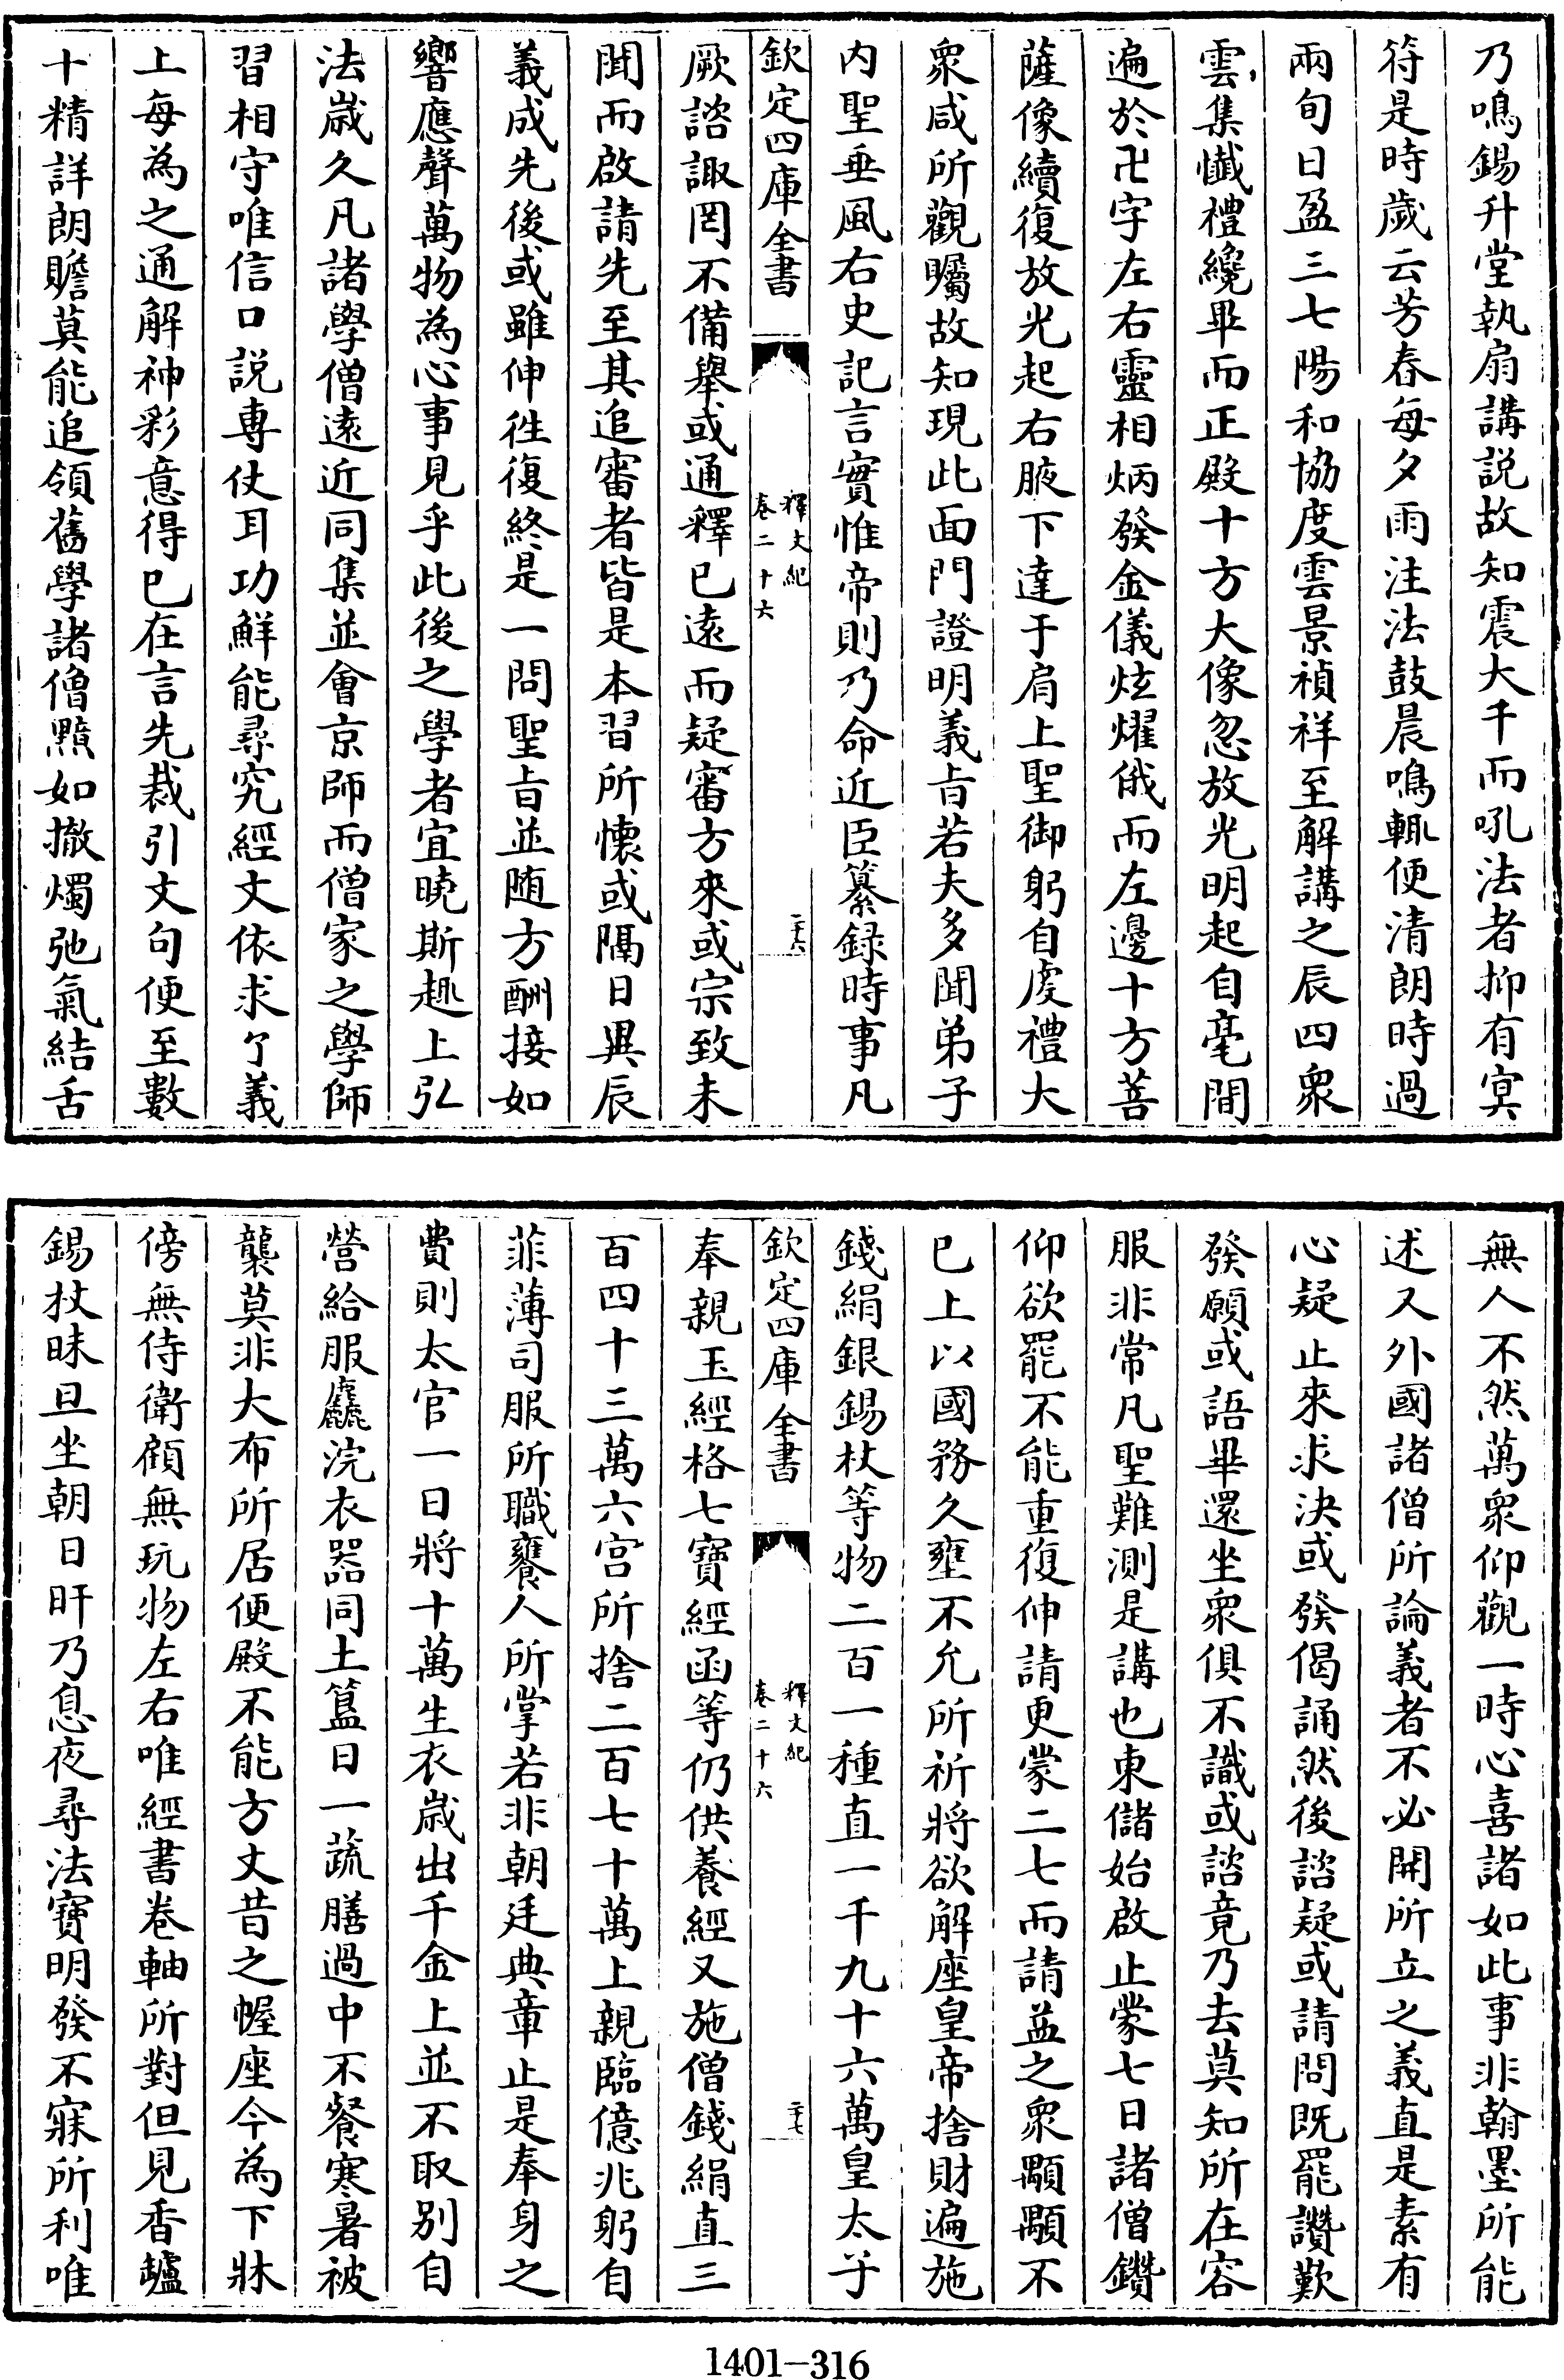 乃鳴錫升堂執扇講説故知震大千而吼法者抑有㝠
符是時歲云芳春每夕雨注法鼓晨鳴輒便清朗時過
兩旬日盈三七陽和協度雲景禎祥至解講之辰四衆
雲集懴禮纔畢而正殿十方大像忽放光明起自毫間
遍於卍字左右靈相炳發金儀炫燿俄而左邊十方菩
薩像續復放光起右腋下達于肩上聖御躬自虔禮大
衆咸所觀矚故知現此面門證明義㫖若夫多聞弟子
内聖垂風右史記言實惟帝則乃命近臣纂録時事凡
欽定四庫全書
釋文紀
卷二十六
二十六
厥諮諏罔不備舉或通釋已遠而疑審方來或宗致未
聞而啟請先至其追審者皆是本習所懷或隔日異辰
義成先後或雖伸徃復終是一問聖㫖並隨方酬接如
響應聲萬物為心事見乎此後之學者宜曉斯趣上弘
法歲久凡諸學僧遠近同集並會京師而僧家之學師
習相守唯信口説専仗耳功鮮能尋究經文依求了義
上每為之通解神彩意得已在言先裁引文句便至數
十精詳朗贍莫能追領舊學諸僧黯如撤燭弛氣結舌
無人不然萬衆仰觀一時心喜諸如此事非翰墨所能
述又外國諸僧所論義者不必開所立之義直是素有
心疑止來求決或發偈誦然後諮疑或請問既罷讚歎
發願或語畢還坐衆俱不識或諮竟乃去莫知所在容
服非常凡聖難測是講也東儲始啟止蒙七日諸僧鑽
仰欲罷不能重復伸請更蒙二七而請益之衆顒顒不
已上以國務久壅不允所祈將欲解座皇帝捨財遍施
錢絹銀錫杖等物二百一種直一千九十六萬皇太子
欽定四庫全書
釋文紀
卷二十六
二十七
奉親玉經格七寳經函等仍供養經又施僧錢絹直三
百四十三萬六宫所捨二百七十萬上親臨億兆躬自
菲薄司服所職饔人所掌若非朝廷典章止是奉身之
費則太官一日將十萬生衣歲出千金上並不取别自
營給服麤浣衣器同土簋日一蔬膳過中不餐寒暑被
襲莫非大布所居便殿不能方丈昔之幄座今為下牀
傍無侍衛顧無玩物左右唯經書卷軸所對但見香罏
錫杖昧旦坐朝日旰乃息夜尋法寳明發不寐所利唯
1401-316